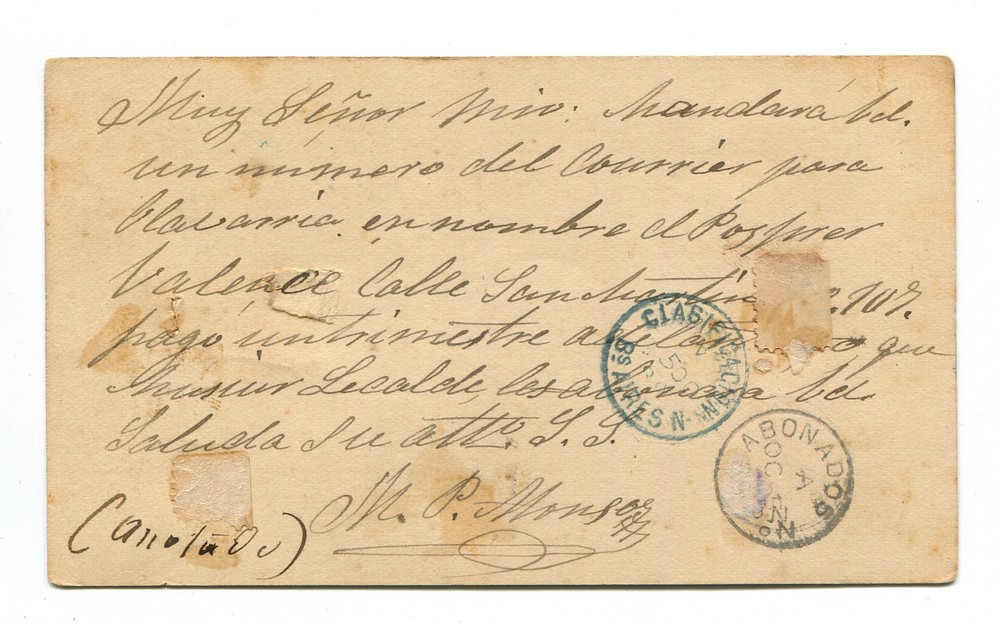 Muy Señor mio: Mandará Vd.
un numero del Courrier para
Olavarria en nombre d Posper
Valence Calle San Martin 107.
pago un trimestre adelan que
Musiur Lecalde los abonara Vd.
Saluda S su atto. S. S.
M. P. Monsor
(anotado)
CLASIFICACION
Bs AIRES N-N
ABONADOS